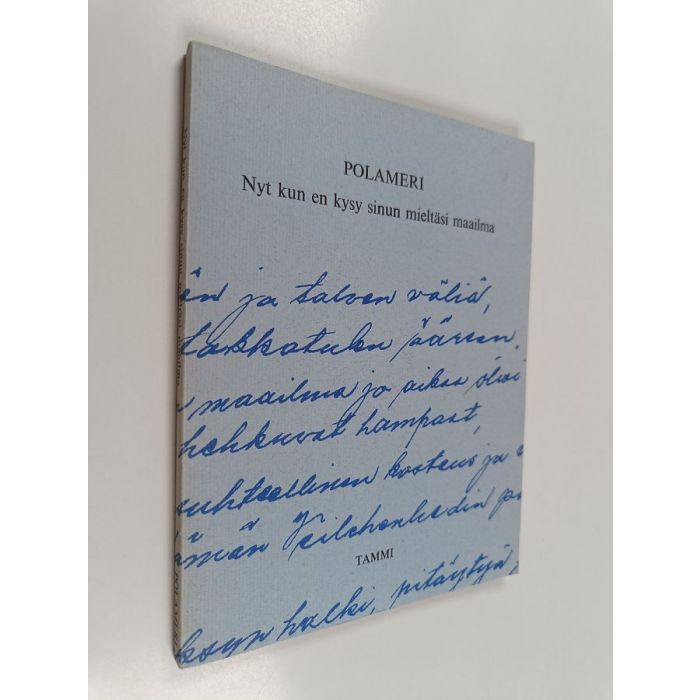 POLAMERI
Nyt kun en kysy sinun mieltäsi maailma
än ja talven väliä,
takkatulen ääreen,
maailma ja aikaa
hehkuvat hampaat,
suhteellinen kosteus ja
ämän
TAMMI
ksyn halki, pitäytyä